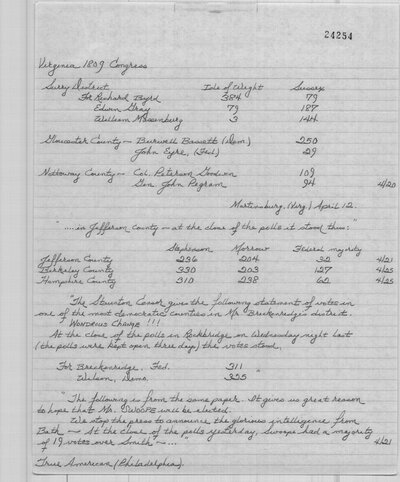 24254
Virginia 1809 Congress
Surry District Isle of Wight Sussex
For Richard Byrd 384 79
Edwin Gray 79 187
William Massenburg 3 144
Gloucester County — Burwell Bassett (Dem.) 250
John Eyre, (Fed.) 29
Nottoway County — Col. Peterson Goodwin 109
Gen. John Pegram 94 4/20
Martinsburg, (Virg.) April 12.
".... in Jefferson county — at the close of the polls it stood thus:"
Stephenson Morrow Federal majority
Jefferson County 236 204 32 4/21
Berkeley County 330 203 127 4/25
Hampshire County 310 238 62 4/25
"The Staunton Censor gives the following statement of votes in
one of the most democratic counties in Mr. Breckenridge's district.
WONDROUS CHANGE !!!
At the close of the polls in Rockbridge on Wednesday night last
(the polls were kept open three days) the votes stood,
For Breckenridge, Fed. 311
Wilson, Demo. 335 "
"The following is from the same paper. It gives us great reason
to hope that Mr. SWOOPE will be elected.
We stop the press to announce the glorious intelligence from
Bath — At the close of the polls yesterday, Swoope had a majority
of 19 votes over Smith" — ... " 4/21
True American (Philadelphia).